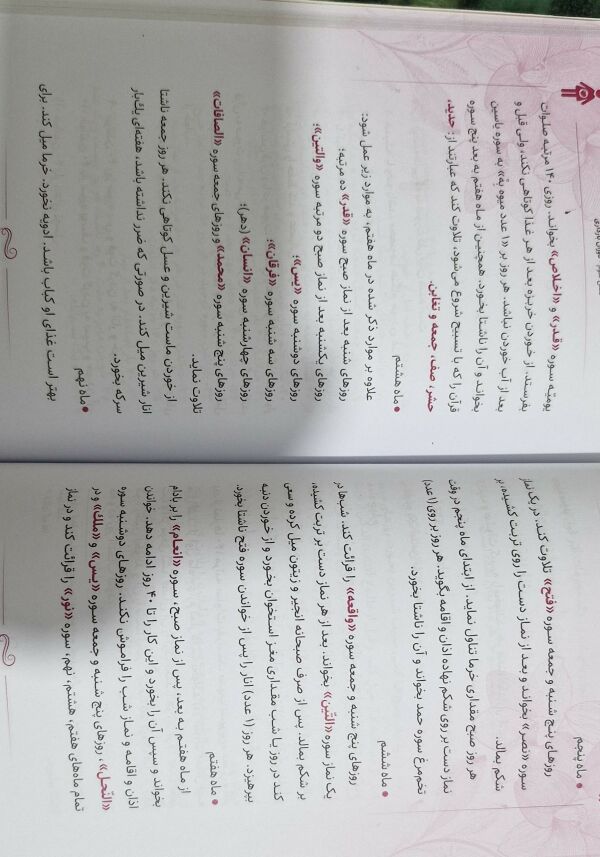 • ماه پنجم
روزهای پنج شنبه و جمعه سوره «فتح» تلاوت کند. در یک نماز
سوره «نصر» بخواند و بعد از نماز دست را روی تربت کشیده، بر
شکم بمالد.
هر روز صبح مقداری خرما تناول نماید. از ابتدای ماه پنجم در وقت
نماز دست بر روی شکم نهاده اذان و اقامه بگوید. هر روز بر روی (۱ عدد)
تخم‌مرغ سوره حمد بخواند و آن را ناشتا بخورد.
• ماه ششم
روزهای پنج شنبه و جمعه سوره «واقعه» را قرائت کند. شب‌ها در
یک نماز سوره «التین» بخواند. بعد از هر نماز دست بر تربت کشیده،
بر شکم بمالد. پس از صرف صبحانه انجیر و زیتون میل کرده و سعی
کند در روز یا شب مقداری مغز استخوان بخورد و از خوردن دنبه
بپرهیزد. هر روز (۱ عدد) انار را پس از خواندن سوره فتح ناشتا بخورد.
• ماه هفتم
از ماه هفتم به بعد، پس از نماز صبح، سوره «انعام» را بر بادام
بخواند و سپس آن را بخورد و این کار را تا ۴۰ روز ادامه دهد. خواندن
اذان و اقامه و نماز شب را فراموش نکند. روزهای دوشنبه سوره
«النّحل»، روزهای پنج شنبه و جمعه سوره «یس» و «ملک» و در
تمام ماه‌های هفتم، هشتم، نهم، سوره «نور» را قرائت کند و در نماز
یومیّه سوره «قدر» و «اخلاص» بخواند. روزی ۱۴۰ مرتبه صلوات
بفرستد. از خوردن خربزه بعد از هر غذا کوتاهی نکند، ولی قبل و
بعد از آب خوردن نباشد. هر روز بر «۱ عدد میوه بِه» به سوره یاسین
بخواند و آن را ناشتا بخورد. همچنین از ماه هفتم به بعد پنج سوره
قرآن را که با تسبیح شروع می‌شود، تلاوت کند که عبارتند از: حدید،
حشر، صف، جمعه و تغابن.
• ماه هشتم
علاوه بر موارد ذکر شده در ماه هفتم، به موارد زیر عمل شود:
روزهای شنبه بعد از نماز صبح سوره «قدر» ده مرتبه؛
روزهای یکشنبه بعد از نماز صبح دو مرتبه سوره «والتین»؛
روزهای دوشنبه سوره «یس»؛
روزهای سه شنبه سوره «فرقان»؛
روزهای چهارشنبه سوره «انسان» (دهر)؛
روزهای پنج شنبه سوره «محمد» و روزهای جمعه سوره «الصافات»
تلاوت نماید.
از خوردن ماست شیرین و عسل کوتاهی نکند. هر روز جمعه ناشتا
انار شیرین میل کند. در صورتی که ضرر نداشته باشد، هفته‌ای یک‌بار
سرکه بخورد.
• ماه نهم
بهتر است غذای او کباب باشد. ادویه نخورد. خرما میل کند. برای